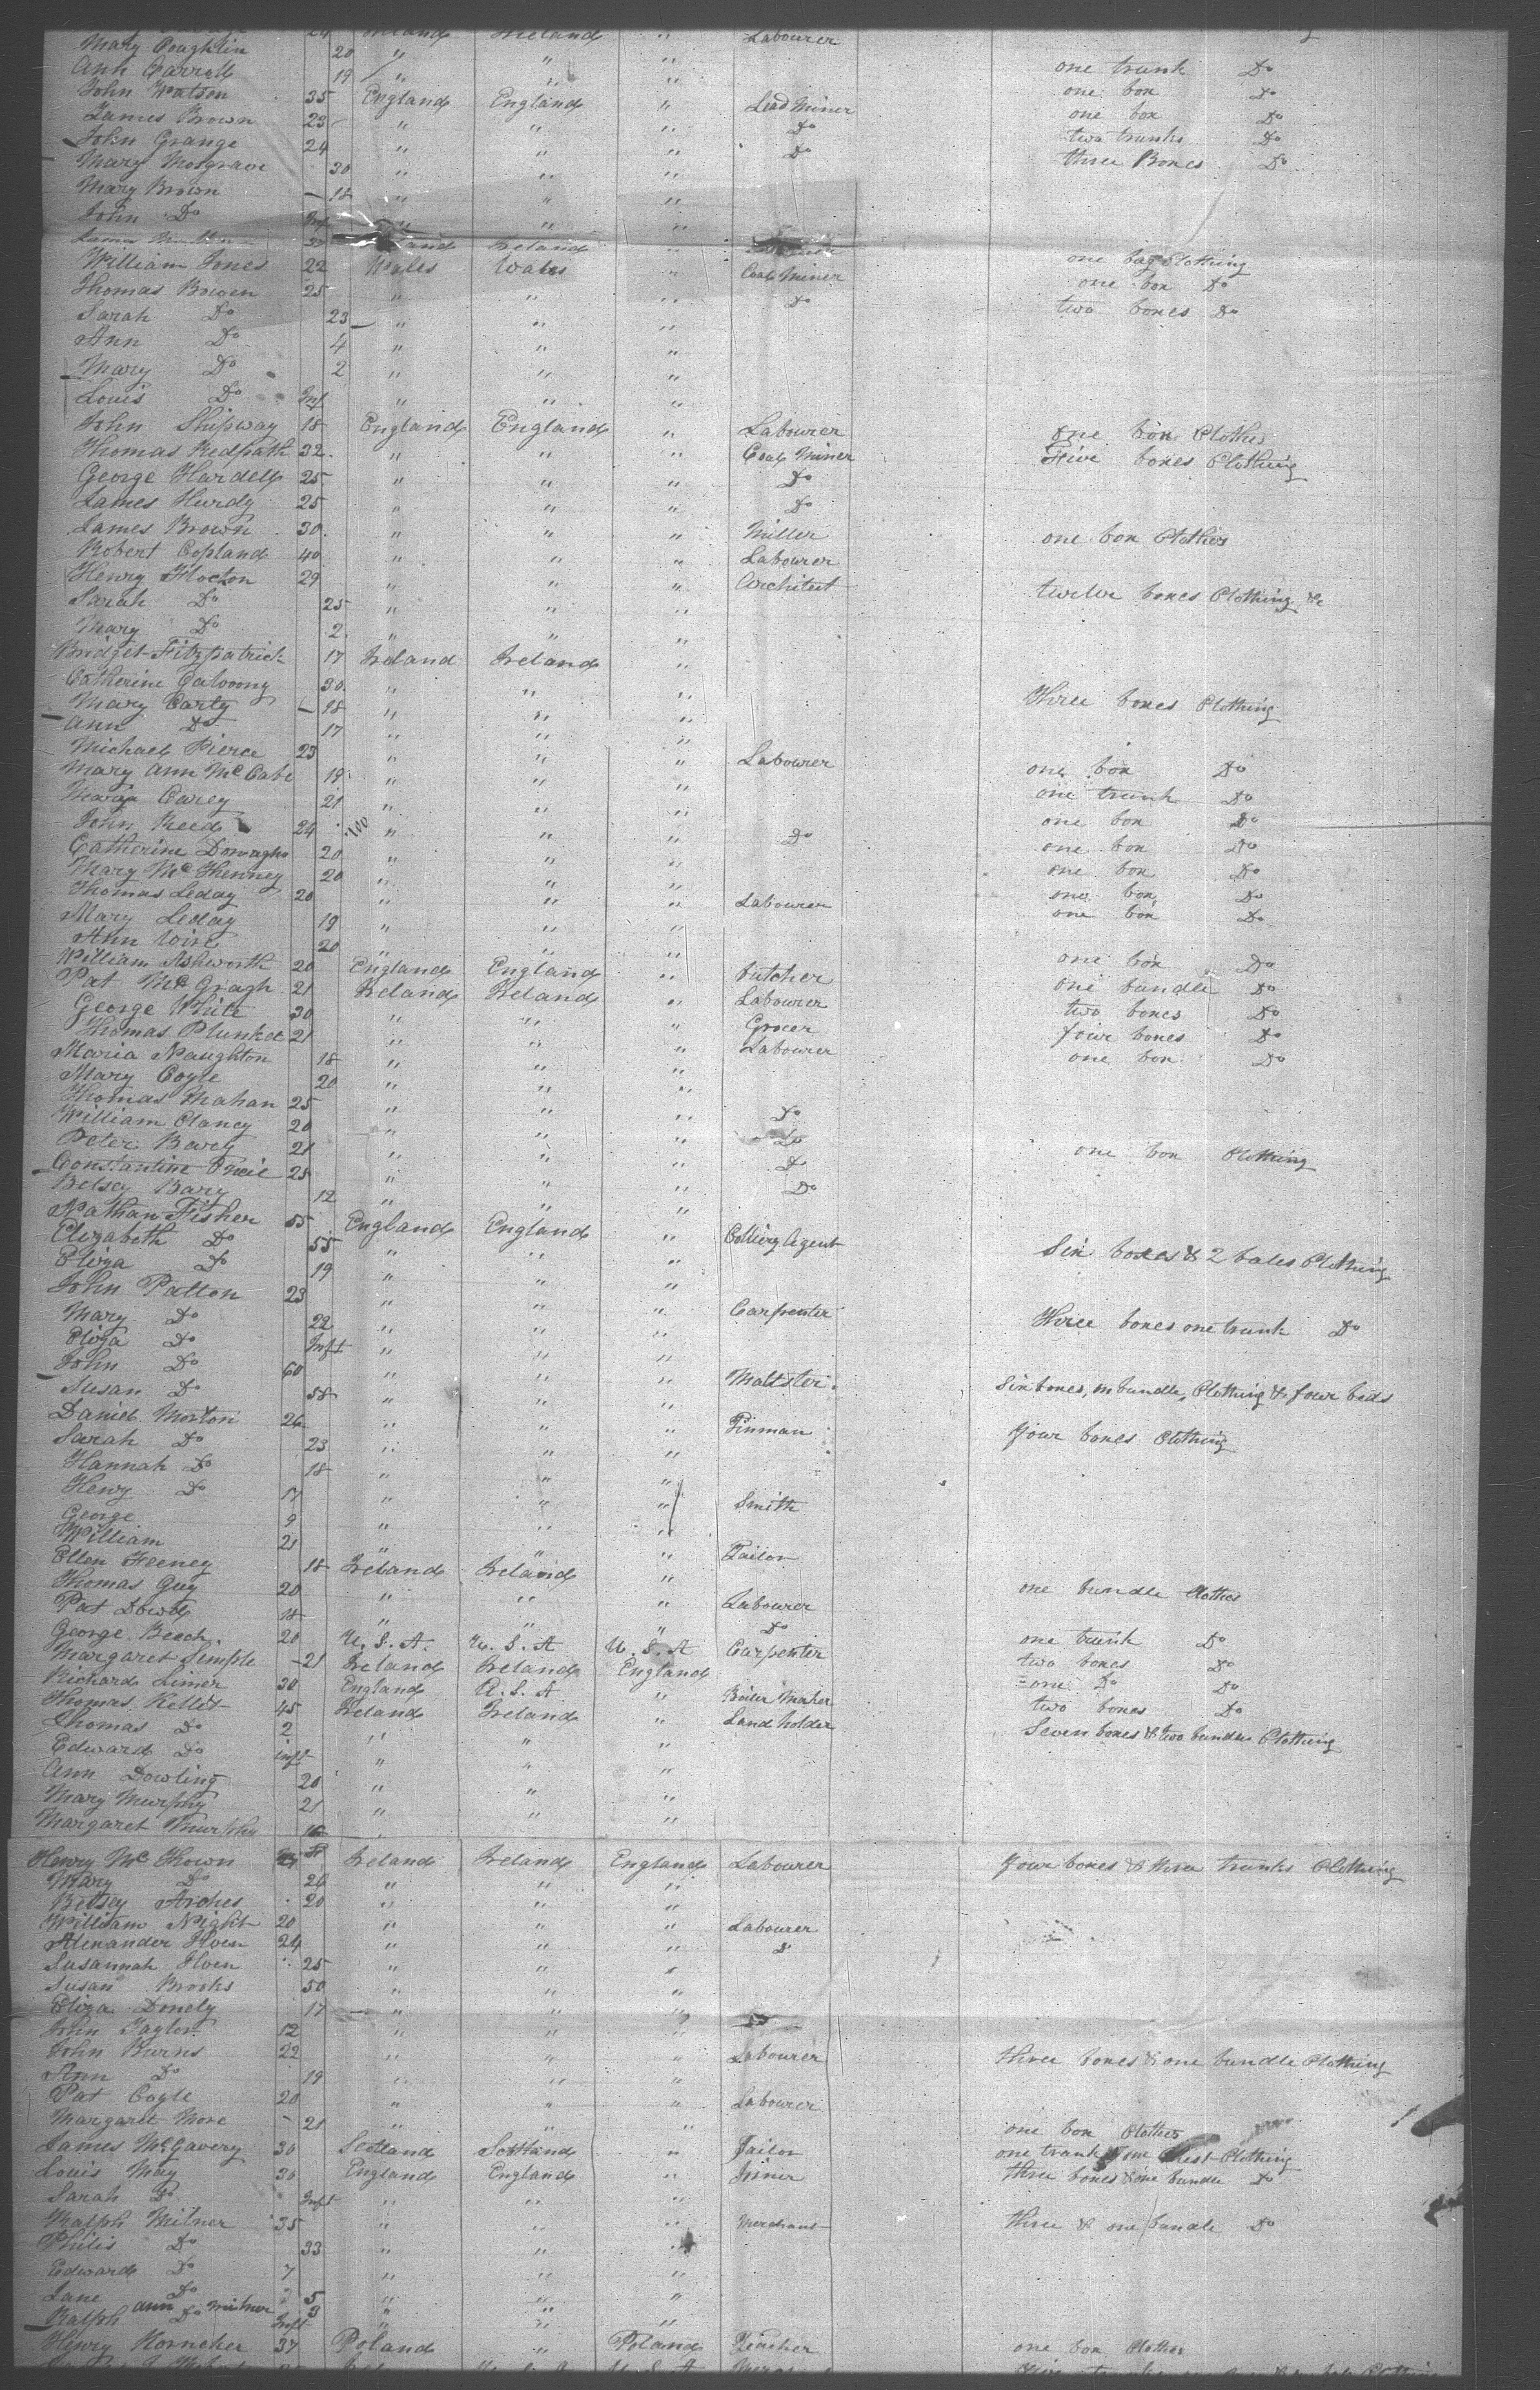 Ireland Ireland " Labourer
Mary Coughlin 20 " " "
Ann Carroll 19 " " " one trunk Do
John Watson 35 England England " Lead Miner one box Do
James Brown 23 " " " Do one box Do
John Grange 24 " " " Do two trunks Do
Mary Mosgrave 30 " " " three Boxes Do
Mary Brown 18 " " "
John Do Inf " " "
Ireland "
William Jones 22 Wales Wales " Coal Miner one bag Clothing
Thomas Bowen 25 " " " Do one box Do
Sarah Do 23 " " " two boxes Do
Ann Do 4 " " "
Mary Do 2 " " "
Louis Do Inf " " "
John Shipway 18 England England " Labourer one box Clothes
Thomas Redpath 32 " " " Coal Miner Five boxes Clothing
George Hardell 25 " " " Do
James Hurdy 25 " " " Do
James Brown 30 " " " Miller one box Clothes
Robert Copland 40 " " " Labourer
Henry Flocton 29 " " " Architect twelve boxes Clothing &c
Sarah Do 25 " " "
Mary Do 2 " " "
Bridget Fitzpatrick 17 Ireland Ireland "
Catherine 30 " " "
Mary Carty 18 " " " three boxes Clothing
Ann Do 17 " " "
Michael Pierce 23 " " " Labourer
Mary Ann McCabe 19 " " " one box Do
Maria Carey 21 " " " one trunk Do
John Reed 24 " " " Do one box Do
Catherine 20 " " " one box Do
Mary 20 " " " one box Do
Thomas Leday 20 " " " Labourer one box Do
Mary Leday 19 " " " one box Do
Ann 20 " " "
William Ashworth 20 England England " butcher one box Do
Pat McGragh 21 Ireland Ireland " Labourer one bundle Do
George White 30 " " " Grocer two boxes Do
Thomas Plunket 21 " " " Labourer four boxes Do
Maria Naughton 18 " " " one box Do
Mary Coyle 20 " " "
Thomas Mahan 25 " " " Do
William Clancy 20 " " " Do
Peter Bary 21 " " " Do one box Clothing
Constantine 25 " " " Do
Betsey Bary 12 " " "
Nathan Fisher 55 England England " Colliery Agent
Elizabeth Do 55 " " " Six boxes & 2 bales Clothing
Eliza Do 19 " " "
John Patton 23 " " " Carpenter
Mary Do 22 " " " three boxes one trunk Do
Eliza Do Inft " " "
John Do 60 " " " Maltster
Susan Do 58 " " " Six boxes, bundle, Clothing & four beds
Daniel Morton 26 " " " four boxes Clothing
Sarah Do 23 " " "
Hannah Do 18 " " "
Henry Do 17 " " " Smith
George 9 " " "
William 21 " " " Tailor
Ellen Feeney 18 Ireland Ireland "
Thomas Guy 20 " " " Labourer one bundle Clothes
Pat Dowd 18 " " " Do
George Beech 20 U. S. A. U. S. A U. S. A Carpenter one trunk Do
Margaret Semple 21 Ireland Ireland England two boxes Do
Richard Limer 30 England U. S. A " Boiler Maker one Do Do
Thomas Kellet 45 Ireland Ireland " Land holder two boxes Do
Thomas Do 2 " " " Seven boxes & two bundles Clothing
Edward Do inft " " "
Ann Dowling 20 " " "
Mary Murphy 21 " " "
Margaret Murphy 16
Henry Ireland Ireland England Labourer four boxes & three trunks Clothing
Mary Do 26 " " "
Betsey Arches 20 " " "
William Night 20 " " " Labourer
Alexander Hoen 24 " " " D
Susannah Hoen 25 " " "
Susan Brooks 50 " " "
Eliza Donely 17 " " "
John Taylor 12 " " "
John Burns 22 " " " Labourer three boxes & one bundle Clothing
Ann Do 19 " " "
Pat Cogle 20 " " " Labourer
Margaret More 21 " " " one box Clothes
James McGavery 30 Scotland Scotland " Tailor one trunk & one Chest Clothing
Louis May 30 England England " Joiner three boxes & one bundle Do
Sarah Do Inft " " "
Ralph Milner 35 " " " Merchant three & one bundle Do
Philis Do 33 " " "
Edward Do 7 " " "
Jane Do 5 " " "
ann Milner 3 "
Ralph Do Inft " " "
Henry Horncher 37 Poland " Poland Teacher one box Clothes